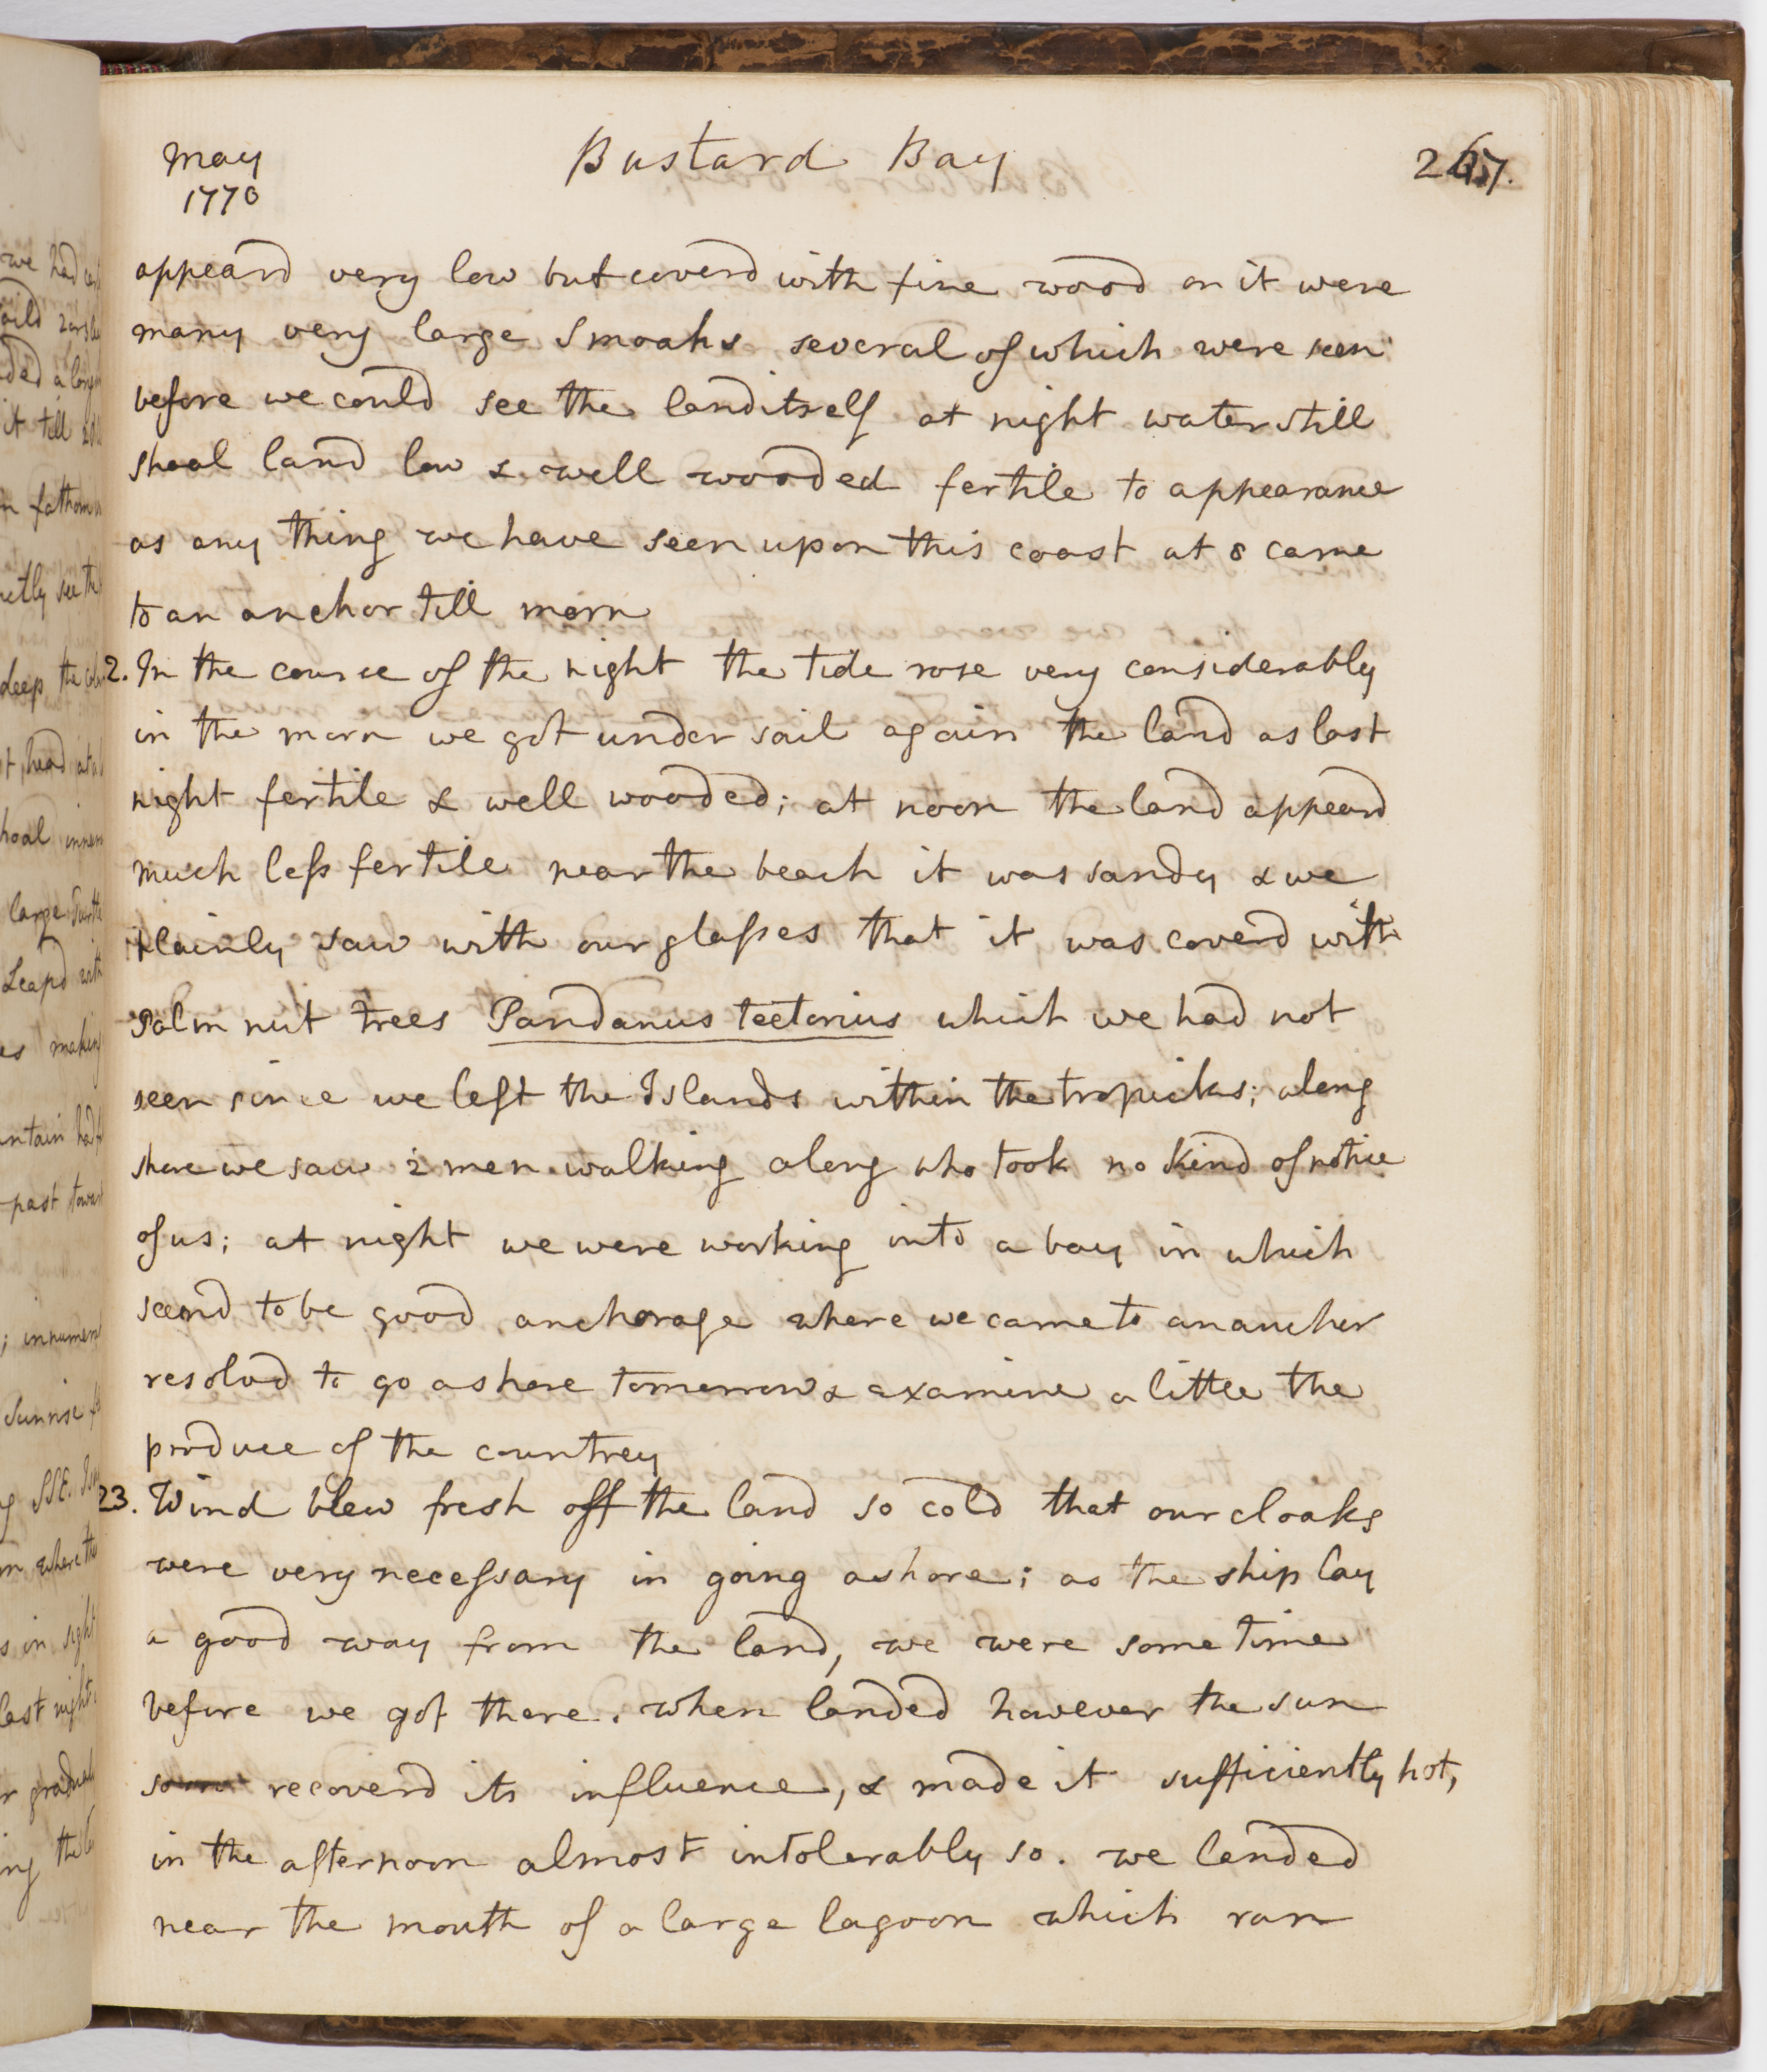 May
1770
Bustard Bay
267.
appeard very low but coverd with fine wood on it were
many very large Smoaks several of which were seen
before we could see the land itself at night water still
shoal land low & well wooded fertile to appearance
as any thing we have seen upon this coast at 8 came
to an anchor till morn
2. In the course of the night the tide rose very considerably
in the morn we got under sail again the land as last
night fertile & well wooded; at noon the land appeard
much less fertile near the beach it was sandy & we
plainly saw with our glasses that it was coverd with
Palm nut trees Pandanus tectorius which we had not
seen since we left the Islands within the tropicks; along
shore we saw 2 men walking along who took no kind of notice
of us; at night we were working into a bay in which
seemd to be good anchorage where we came to an anchor
resolvd to go ashore tomorrow & examine a little the
produce of the countrey
23. Wind blew fresh off the land so cold that our cloaks
were very necessary in going ashore; as the ship lay
a good way from the land, we were some time
before we got there. when landed however the sun
recoverd its influence, & made it sufficiently hot,
in the afternoon almost intolerably so. we landed
near the mouth of a large lagoon which ran